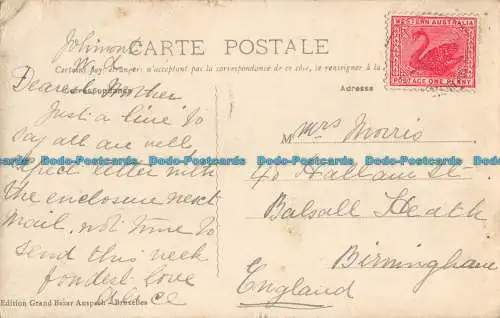 CARTE POSTALE
Certains pays étrangers n'acceptant pas la correspondance de ce côté, se renseigner à la
Correspondance
Adresse
WESTERN AUSTRALIA
POSTAGE ONE PENNY
Jolimont
W.A.
Dearest Mother
Just a line to
say all are well
expect letter with
the enclosure next
mail, not time to
send this week
fondest love
Alice
M Mrs Morris
40 Hallam St
Balsall Heath
Birmingham
England
Edition Grand Bazar Anspach - Bruxelles
Bodo-Postcards Bodo-Postcards Bodo-Postcards Bodo-Postcards